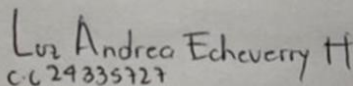 Luz Andrea Echeverry H
C.C 24335727